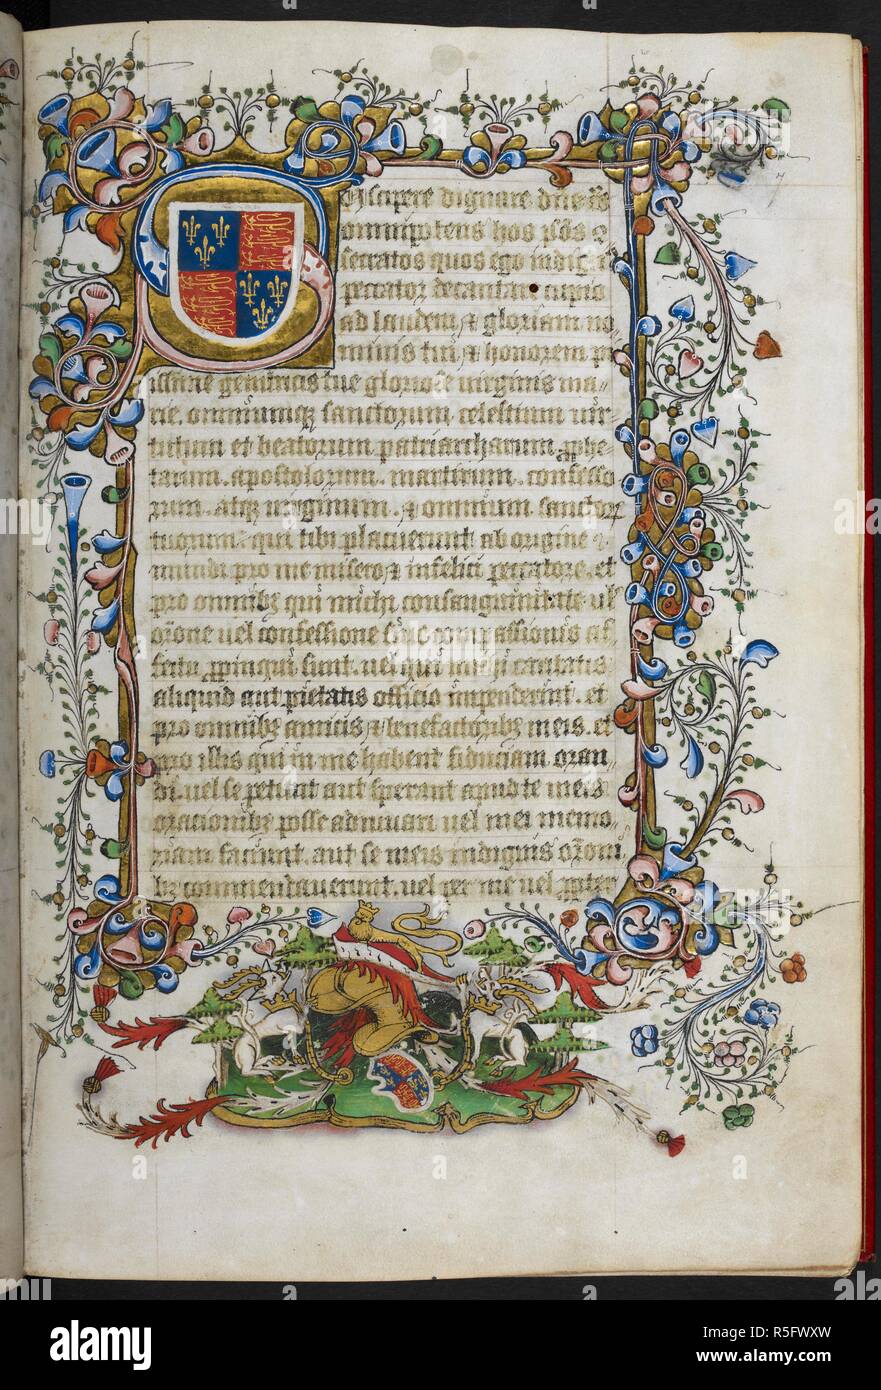 Suscipere dignare dne ds
omnipotens hos ps̄os ⁊
serratos quos ego indig
peccator decantare cupio
ad laudem ⁊ gloriam no
minis tui ⁊ honorem
genitricis tue gloriose virginis ma-
rie. omniumqꝫ sanctorum. celestium vir-
tutum et beatorum patriarcharum. ꝓphe-
tarum. apostolorum. martirum. confesso
rum. atqꝫ virginum. ⁊ omnium sanctor
tuorum. qui tibi placuerunt ab origine
mundi pro me misero ⁊ infelici peccatore. et
pro omnibꝫ qui michi consanguinitate. ul
oīone uel confessione siue compassionis af
fatu ꝓpinqui sunt. uel qui michi caritatis
aliquid aut pietatis officio impenderint. et
pro omnibꝫ amicis ⁊ benefactoribꝫ meis. et
pro illis qui in me habent fiduciam oran
di. uel se petunt aut sperant apud te meis
oracionibꝫ posse adiuuari uel mei memo
riam faciunt. aut se meis indignis oīoni
bꝫ commendauerunt. uel per me uel ꝓpter
alamy
a
Image ID: R5FWXW
www.alamy.com